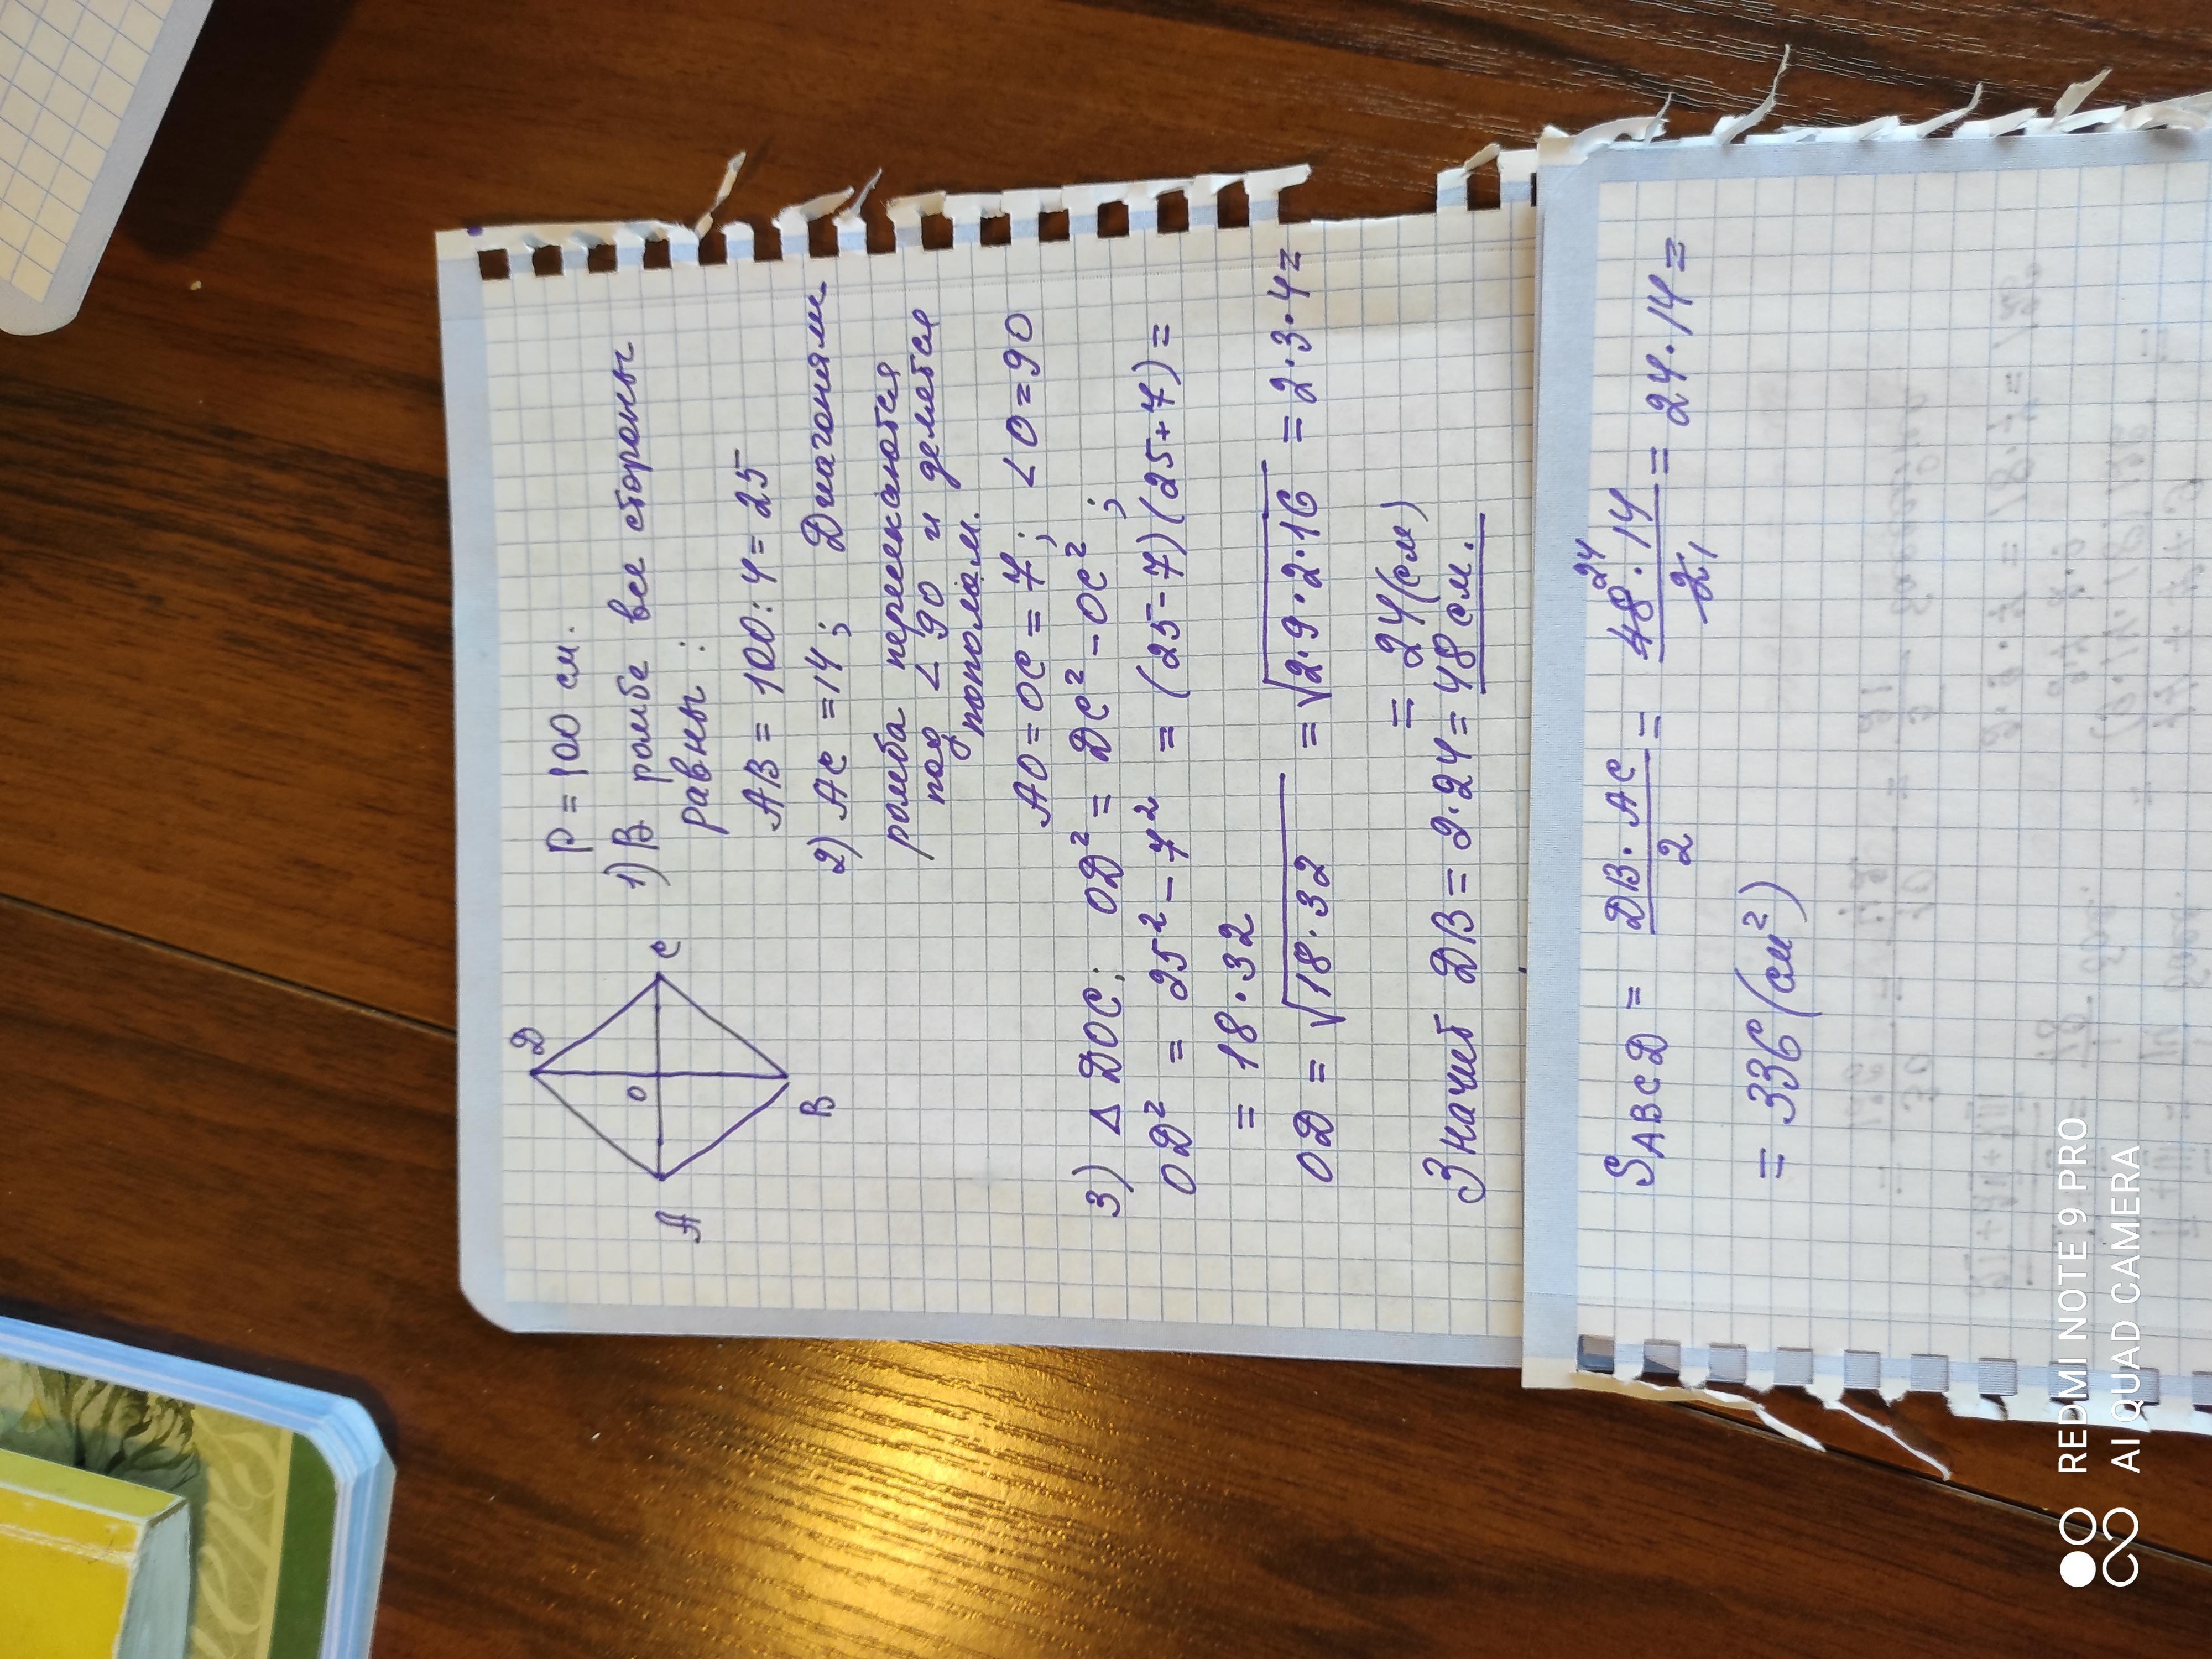 D
A
O
C
B
P = 100 см.
1) В ромбе все стороны
равны:
AB = 100 : 4 = 25
2) AC = 14; Диагонали
ромба пересекаются
под < 90 и делятся
пополам.
AO = OC = 7; <O = 90
3) Δ DOC; OD² = DC² - OC²;
OD² = 25² - 7² = (25-7)(25+7) =
= 18 · 32
OD = √18 · 32 = √2 · 9 · 2 · 16 = 2 · 3 · 4 =
= 24 (см)
Значит DB = 2 · 24 = 48 см.
S ABCD = DB · AC / 2 = 48 24 · 14 / 2 1 = 24 · 14 =
= 336 (см²)
REDMI NOTE 9 PRO
AI QUAD CAMERA